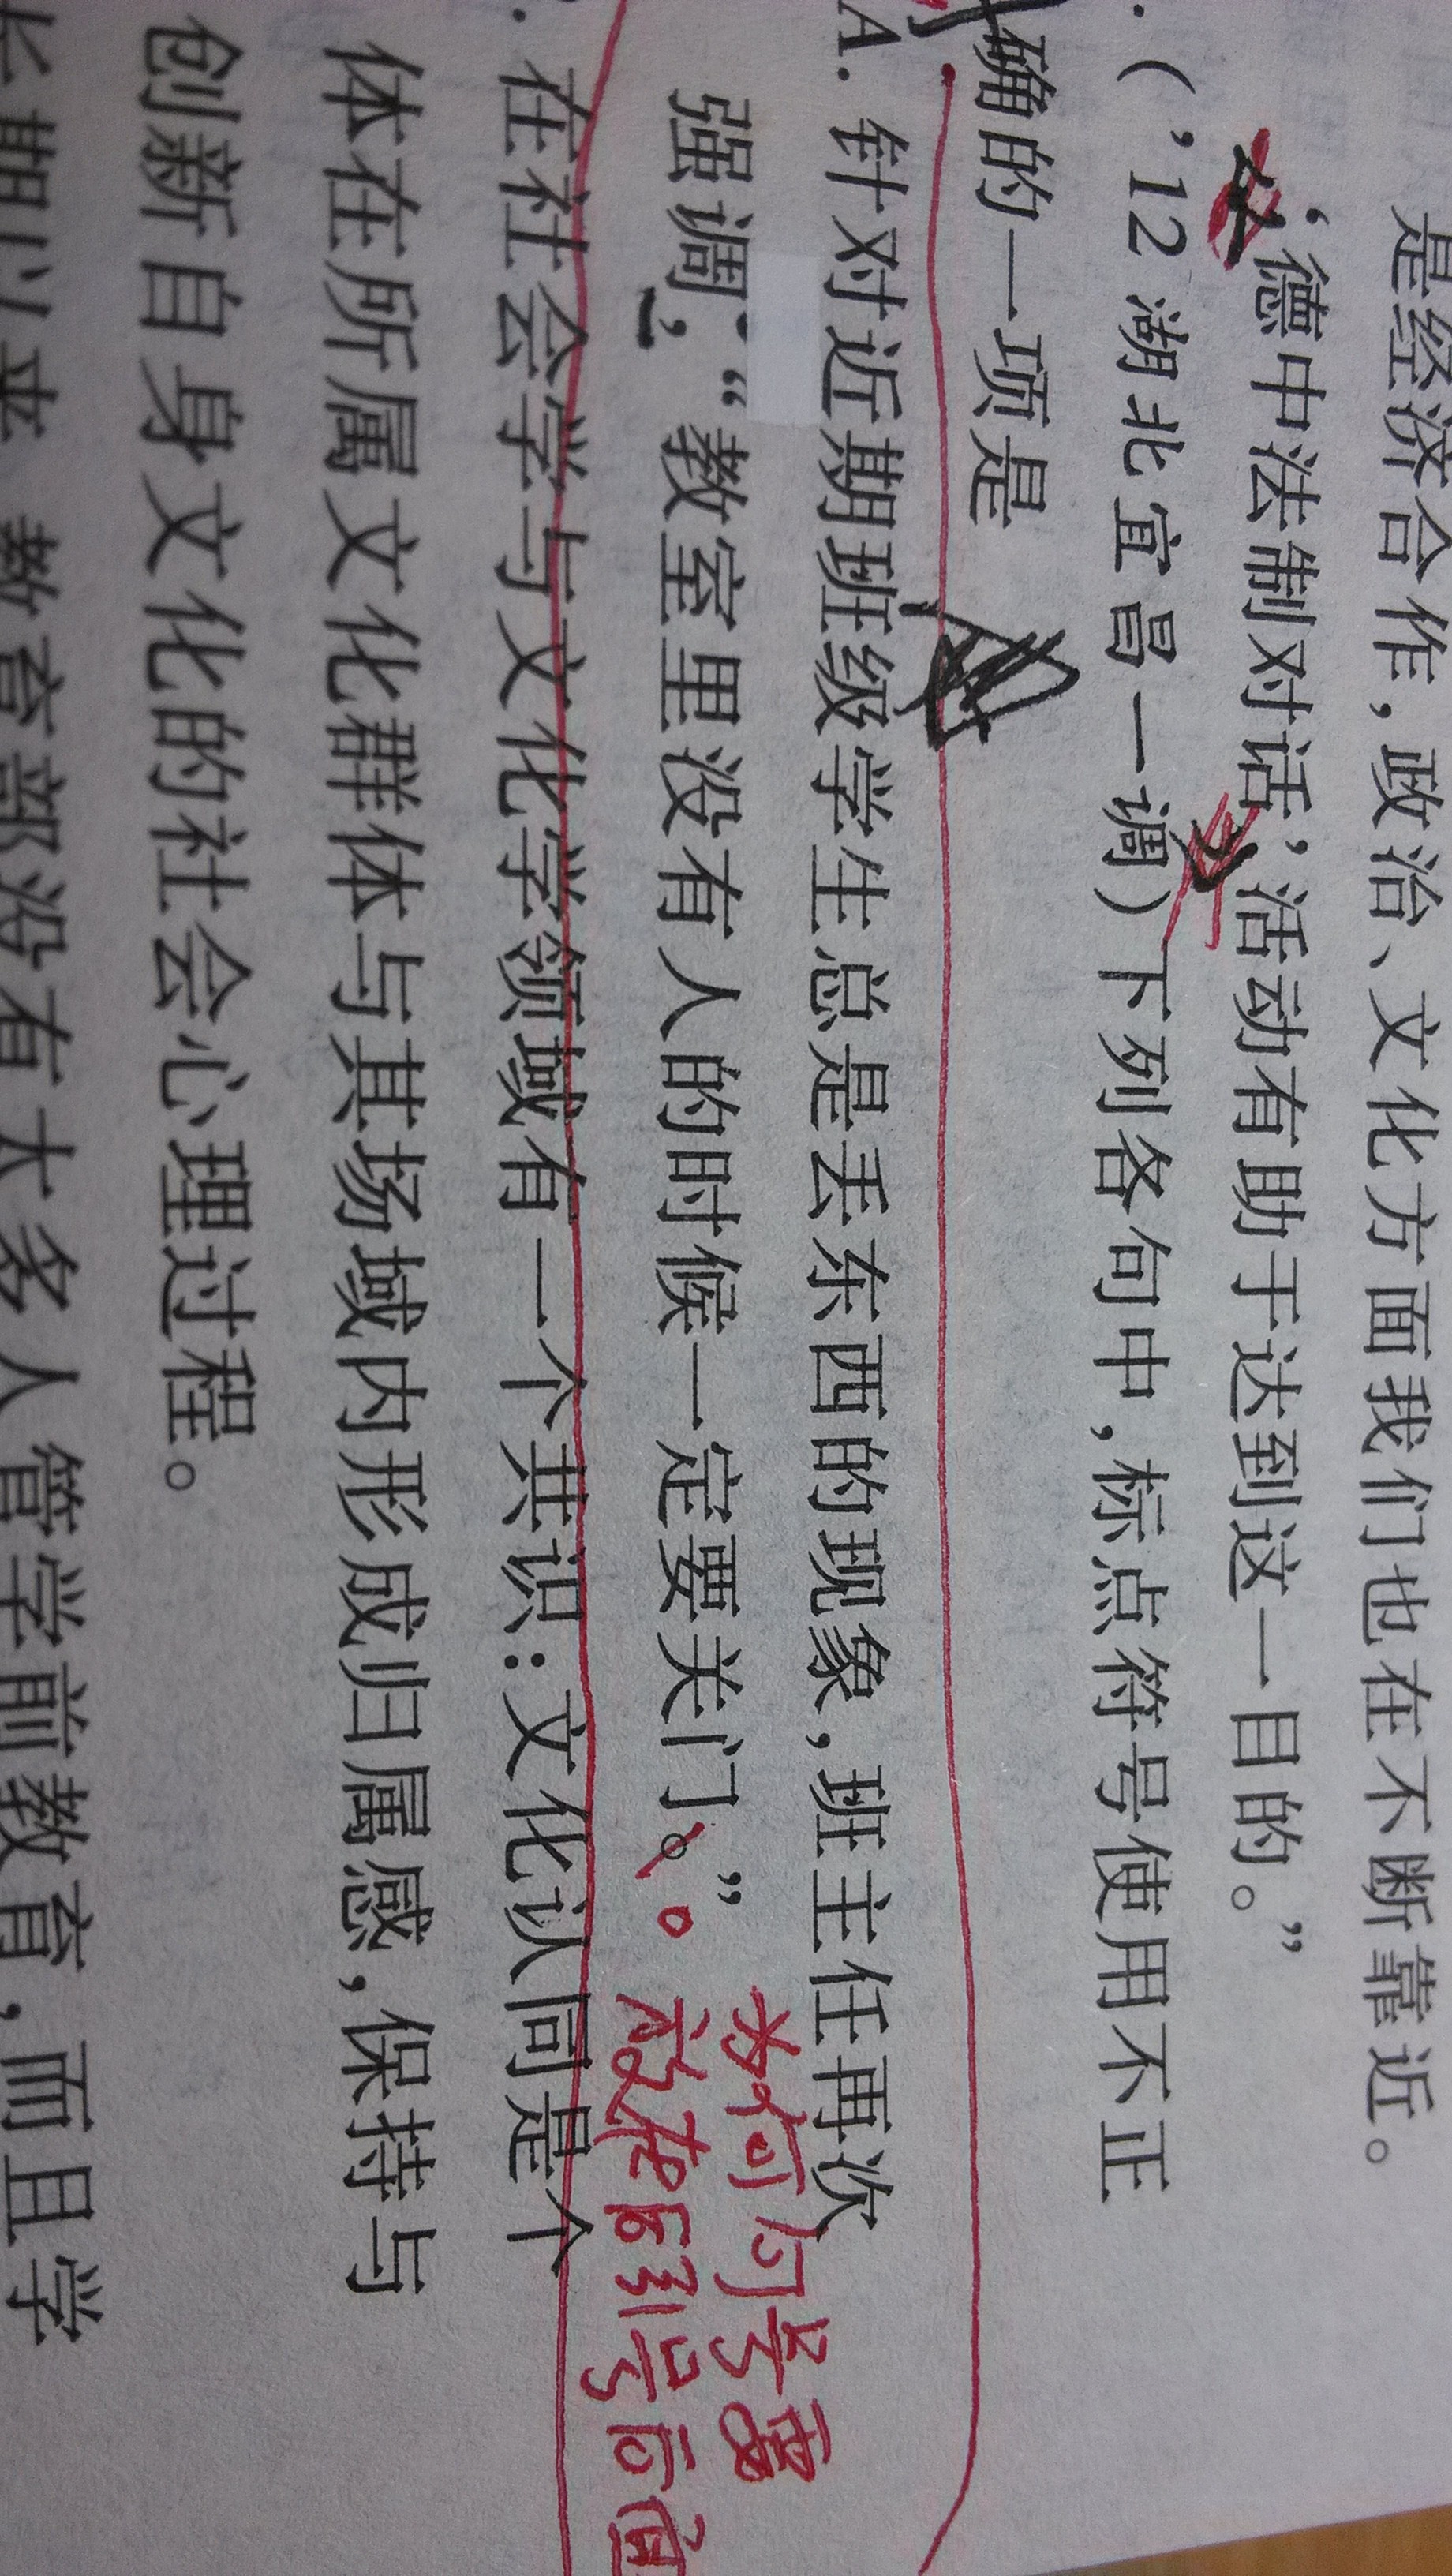 是经济合作，政治、文化方面我们也在不断靠近。
‘德中法制对话’活动有助于达到这一目的。”
.（’12 湖北宜昌一调）下列各句中，标点符号使用不正
确的一项是
A. 针对近期班级学生总是丢东西的现象，班主任再次
强调，“教室里没有人的时候一定要关门。”。
为何句号要
放在后引号后面
. 在社会学与文化学领域有一个共识：文化认同是个
体在所属文化群体与其场域内形成归属感，保持与
创新自身文化的社会心理过程。
长期以来，教育部没有太多人管学前教育，而且学